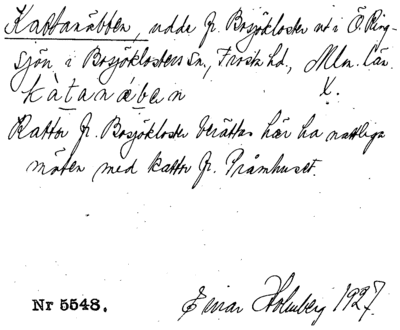 Kattanäbben, udde fr. Bosjökloster ut i Ö. Ring-
sjön i Bosjöklosters sn., Frosta hd., Mlm. län.
kàtanäben
Kattor fr. Bosjökloster berättas här ha nattliga
möten med kattor fr. Pråmhuset.
Nr 5548. Einar Holmberg 1927.